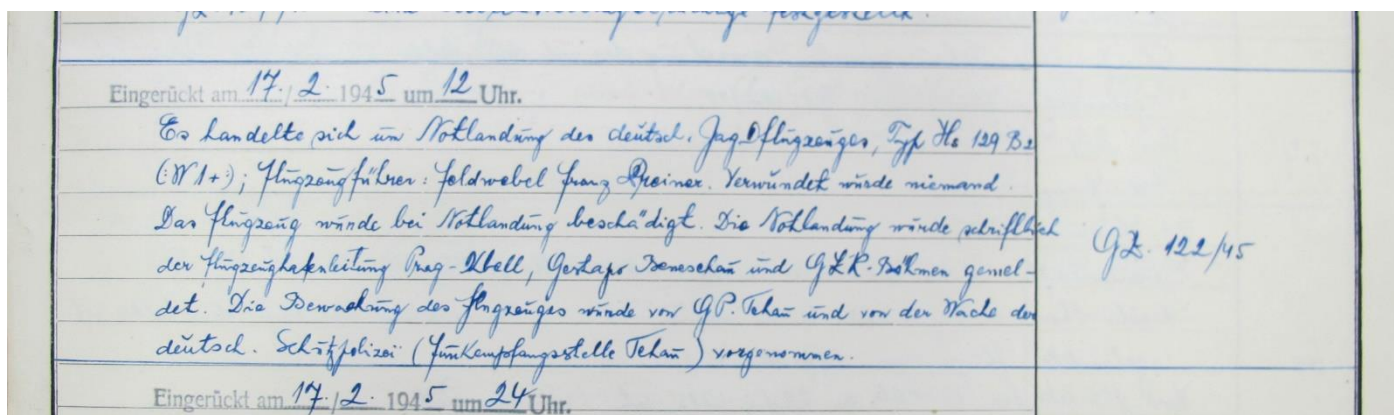 festgestellt.
Eingerückt am 17./2. 1945 um 12 Uhr.
Es handelte sich um Notlandung des deutsch. Jagdflugzeuges, Typ Hs 129 B2
(:W1+:); Flugzeugführer: Feldwebel Franz Preiner. Verwundet wurde niemand.
Das Flugzeug wurde bei Notlandung beschädigt. Die Notlandung wurde schriftlich
der Flugzeughafenleitung Prag-Kbell, Gestapo Beneschau und GLK-Böhmen gemel-
GZ. 122/45
det. Die Bewachung des Flugzeuges wurde von GP. Tehau und von der Wache der
deutsch. Schutzpolizei (Funkempfangsstelle Tehau) vorgenommen.
Eingerückt am 17./2. 1945 um 24 Uhr.